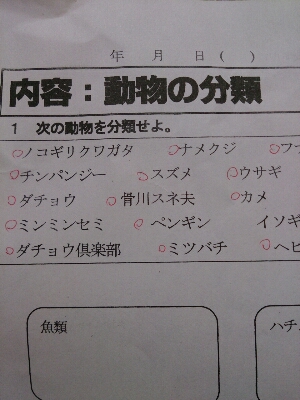 年 月 日( )
内容:動物の分類
1 次の動物を分類せよ。
ノコギリクワガタ ナメクジ フナ
チンパンジー スズメ ウサギ
ダチョウ 骨川スネ夫 カメ
ミンミンゼミ ペンギン イソギ
ダチョウ倶楽部 ミツバチ ヘビ
魚類 ハチ